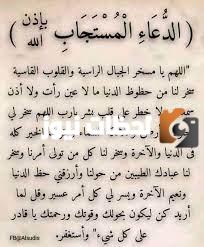 ( الدُّعَاءِ الْمُسْتَجَابِ بإذن الله )
"اللهم يا مسخر الجبال الراسية والقلوب القاسية
سخر لنا من حظوظ الدنيا ما لا عين رأت ولا أذن
ولا خطر على قلب بشر يارب اللهم سخر لي
الخير كله
في الدنيا والآخرة وسخر لنا كل من تولى أمرنا وسخر
لنا عبادك الطيبين من حولنا وأرزقني حظ الدنيا
ونعيم الآخرة ويسر لي كل أمر عسير وقل لما
أريد كن ليكون بحولك وقوتك ورحمتك يا قادر
على كل شيء" وأستغفر.
لحظات نيوز
FB@Alsudis